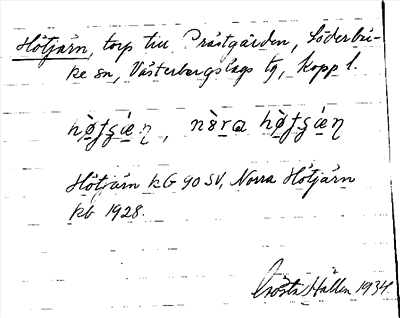 Hötjärn, torp till Prästgården, Söderbär-
ke sn, Västerbergslags tg, Kopp l.
Hötjärn kG 90 SV, Norra Hötjärn
kb 1928.
Gösta Hällen 1934.